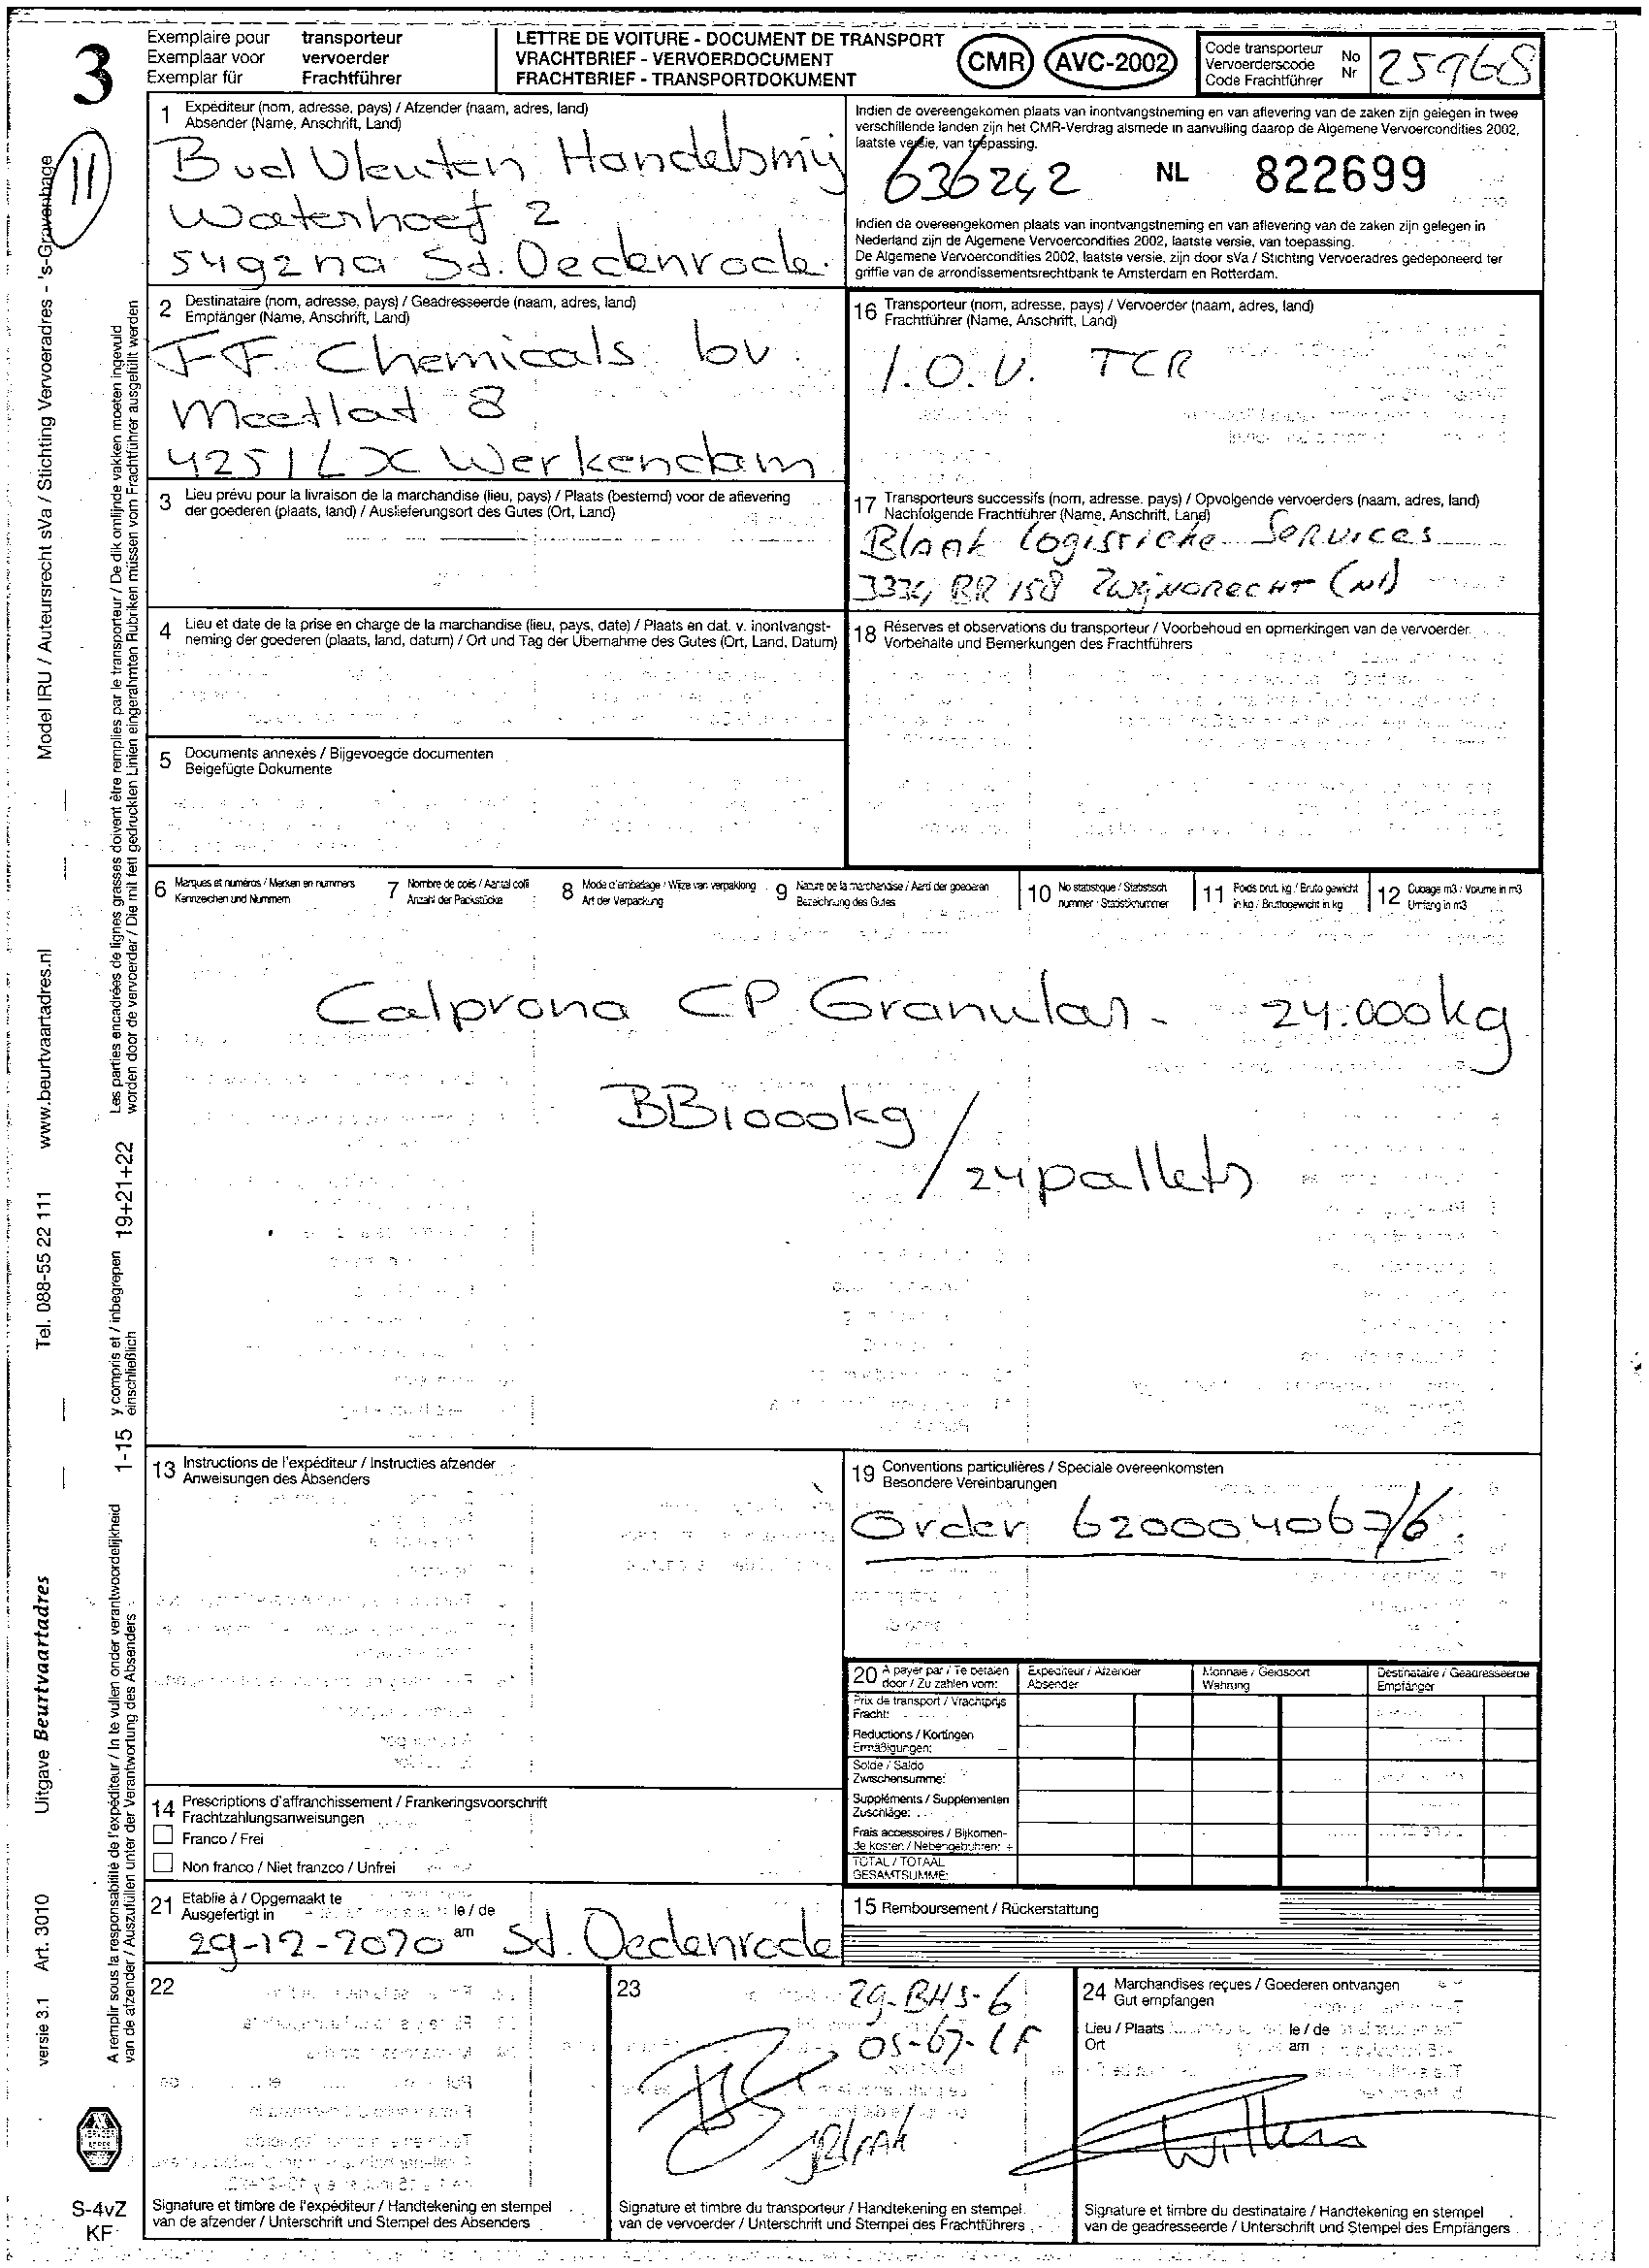 3
Exemplaire pour transporteur
Exemplaar voor vervoerder
Exemplar für Frachtführer
LETTRE DE VOITURE - DOCUMENT DE TRANSPORT
VRACHTBRIEF - VERVOERDOCUMENT
FRACHTBRIEF - TRANSPORTDOKUMENT
CMR AVC-2002
Code transporteur No
Vervoerderscode Nr
Code Frachtführer
25968
11
1 Expéditeur (nom, adresse, pays) / Afzender (naam, adres, land)
Absender (Name, Anschrift, Land)
Bud Vleuten Handelsmij
Waterhoef 2
5492na St. Oedenrode.
Indien de overeengekomen plaats van inontvangstneming en van aflevering van de zaken zijn gelegen in twee
verschillende landen zijn het CMR-Verdrag alsmede in aanvulling daarop de Algemene Vervoercondities 2002,
laatste versie, van toepassing.
636242 NL 822699
Indien de overeengekomen plaats van inontvangstneming en van aflevering van de zaken zijn gelegen in
Nederland zijn de Algemene Vervoercondities 2002, laatste versie, van toepassing.
De Algemene Vervoercondities 2002, laatste versie, zijn door sVa / Stichting Vervoeradres gedeponeerd ter
griffie van de arrondissementsrechtbank te Amsterdam en Rotterdam.
2 Destinataire (nom, adresse, pays) / Geadresseerde (naam, adres, land)
Empfänger (Name, Anschrift, Land)
FF. Chemicals bv.
Meetlat 8
4251LX Werkendam
16 Transporteur (nom, adresse, pays) / Vervoerder (naam, adres, land)
Frachtführer (Name, Anschrift, Land)
I.O.V. TCR
3 Lieu prévu pour la livraison de la marchandise (lieu, pays) / Plaats (bestemd) voor de aflevering
der goederen (plaats, land) / Auslieferungsort des Gutes (Ort, Land)
17 Transporteurs successifs (nom, adresse, pays) / Opvolgende vervoerders (naam, adres, land)
Nachfolgende Frachtführer (Name, Anschrift, Land)
Blaak logistieke Services
3334 BR 158 Zwijndrecht (Nl)
4 Lieu et date de la prise en charge de la marchandise (lieu, pays, date) / Plaats en dat. v. inontvangst-
neming der goederen (plaats, land, datum) / Ort und Tag der Übernahme des Gutes (Ort, Land, Datum)
18 Réserves et observations du transporteur / Voorbehoud en opmerkingen van de vervoerder
Vorbehalte und Bemerkungen des Frachtführers
5 Documents annexés / Bijgevoegde documenten
Beigefügte Dokumente
6 Marques et numéros / Merken en nummers
Kennzeichen und Nummern
7 Nombre de colis / Aantal colli
Anzahl der Packstücke
8 Mode d'emballage / Wijze van verpakking
Art der Verpackung
9 Nature de la marchandise / Aard der goederen
Bezeichnung des Gutes
10 No statistique / Statistisch
nummer / Statistiknummer
11 Poids brut, kg / Bruto gewicht
in kg / Bruttogewicht in kg
12 Cubage m3 / Volume in m3
Umfang in m3
Calprona CP Granular - 24.000kg
BB1000kg
/ 24 pallets
13 Instructions de l'expéditeur / Instructies afzender
Anweisungen des Absenders
19 Conventions particulières / Speciale overeenkomsten
Besondere Vereinbarungen
Order 620004067/6.
20 A payer par / Te betalen
door / Zu zahlen vom:
Expéditeur / Afzender
Absender
Monnaie / Geldsoort
Währung
Destinataire / Geadresseerde
Empfänger
Prix de transport / Vrachtprijs
Fracht:
Reductions / Kortingen
Ermäßigungen: -
Solde / Saldo
Zwischensumme:
Suppléments / Supplementen
Zuschläge:
Frais accessoires / Bijkomen-
de kosten / Nebengebühren: +
TOTAL / TOTAAL
GESAMTSUMME:
14 Prescriptions d'affranchissement / Frankeringsvoorschrift
Frachtzahlungsanweisungen
Franco / Frei
Non franco / Niet franco / Unfrei
21 Etablie à / Opgemaakt te le / de
Ausgefertigt in am
29-12-2020 St. Oedenrode
15 Remboursement / Rückerstattung
22
23
29-BHS-6
05-67-LF
Blaak
24 Marchandises reçues / Goederen ontvangen
Gut empfangen
Lieu / Plaats le / de
Ort am
Signature et timbre de l'expéditeur / Handtekening en stempel
van de afzender / Unterschrift und Stempel des Absenders
Signature et timbre du transporteur / Handtekening en stempel
van de vervoerder / Unterschrift und Stempel des Frachtführers
Signature et timbre du destinataire / Handtekening en stempel
van de geadresseerde / Unterschrift und Stempel des Empfängers
Model IRU / Auteursrecht sVa / Stichting Vervoeradres - 's-Gravenhage
www.beurtvaartadres.nl
Tel. 088-55 22 111
Uitgave Beurtvaartadres
Art. 3010
versie 3.1
Les parties encadrées de lignes grasses doivent être remplies par le transporteur / De dik omlijnde vakken moeten ingevuld
worden door de vervoerder / Die mit fett gedruckten Linien eingerahmten Rubriken müssen vom Frachtführer ausgefüllt werden
19+21+22
y compris et / inbegrepen
einschließlich
1-15
A remplir sous la responsabilité de l'expéditeur / In te vullen onder verantwoordelijkheid
van de afzender / Auszufüllen unter der Verantwortung des Absenders
S-4vZ
KF